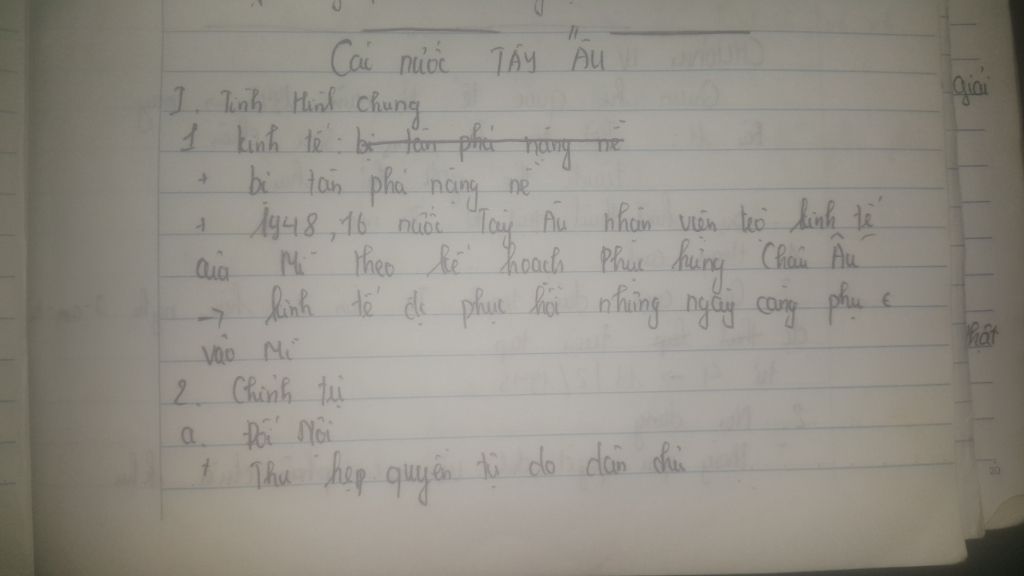 Các nước TÂY ÂU
I. Tình Hình Chung
1 Kinh tế : bị tàn phá nặng nề
+ bị tàn phá nặng nề
+ 1948, 16 nước Tây Âu nhận viện trợ kinh tế
của Mĩ theo kế hoạch Phục hưng Châu Âu
→ kinh tế phục hồi nhưng ngày càng phụ
vào Mĩ
2. Chính trị
a. Đối Nội
+ Thu hẹp quyền tự do dân chủ
giải